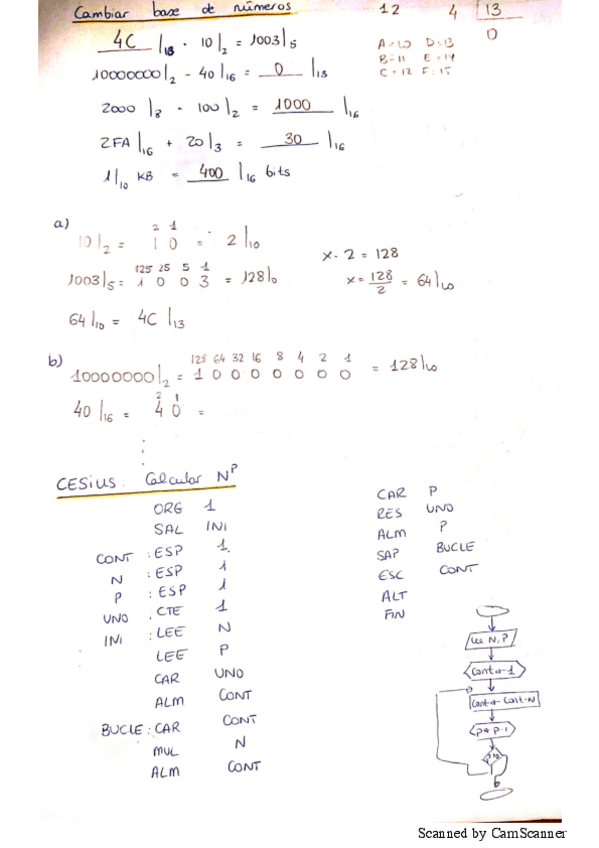 Cambiar base de números
12 4 |13
0
A=10 D=13
B=11 E=14
C=12 F=15
4C |13 · 10|2 = 1003|5
10000000|2 - 40|16 = 0 |13
2000 |8 - 100|2 = 1000 |16
2FA|16 + 20|3 = 30 |16
1|10 KB = 400 |16 bits
a)
2 1
10|2 = 1 0 = 2|10
x · 2 = 128
125 25 5 1
1003|5 = 1 0 0 3 = 128|0
x = 128/2 = 64|10
64|10 = 4C |13
b)
128 64 32 16 8 4 2 1
10000000|2 = 1 0 0 0 0 0 0 0 = 128|10
2 1
40|16 = 4 0 =
CESIUS: Calcular N^P
ORG 1
SAL INI
CONT : ESP 1
N : ESP 1
P : ESP 1
UNO : CTE 1
INI : LEE N
LEE P
CAR UNO
ALM CONT
BUCLE : CAR CONT
MUL N
ALM CONT
CAR P
RES UNO
ALM P
SAP BUCLE
ESC CONT
ALT
FIN
Lee N, P
Cont ← 1
Cont ← Cont·N
P ← P-1
Scanned by CamScanner